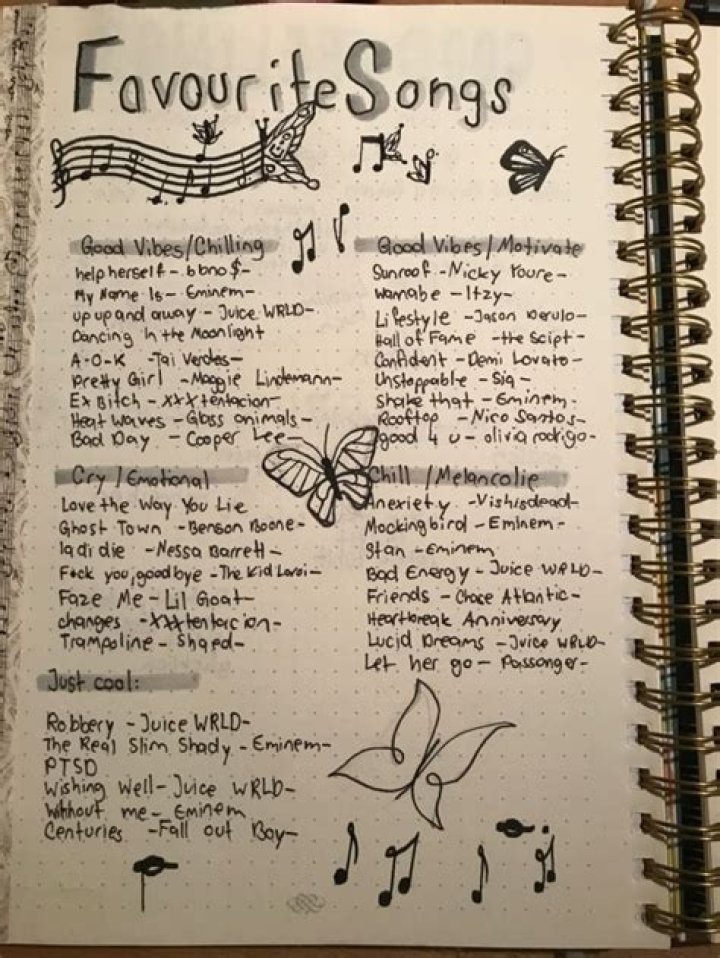 Favourite Songs
Good Vibes/Chilling
help herself - bbno$-
My Name Is - Eminem-
up up and away - Juice WRLD-
Dancing In the Moonlight
A-O-K -Tai Verdes-
Pretty Girl -Maggie Lindemann-
Ex Bitch -XXXtentacion-
Heat Waves -Glass animals-
Bad Day - Cooper Lee-
Good Vibes/Motivate
Sunroof -Nicky Youre-
wanabe -Itzy-
Lifestyle -Jason Derulo-
Hall of Fame -the Script-
Confident -Demi Lovato-
Unstoppable -Sia-
Shake that -Eminem-
Rooftop - Nico Santos-
good 4 u - olivia rodrigo-
Cry/Emotional
Love the Way You Lie
Ghost Town -Benson Boone-
la di die -Nessa Barrett-
F*ck you, goodbye -The Kid Laroi-
Faze Me - Lil Goat-
changes -XXXtentacion-
Trampoline - Shaed-
Chill/Melancolie
Anexiety -Vishisdead-
Mockingbird -Eminem-
Stan -Eminem
Bad Energy - Juice WRLD-
Friends -Chase Atlantic-
Heartbreak Anniversary
Lucid Dreams -Juice WRLD-
Let her go - Passonger-
Just cool:
Robbery -Juice WRLD-
The Real Slim Shady -Eminem-
PTSD
Wishing Well- Juice WRLD-
Without me- Eminem
Centuries -Fall out Boy-